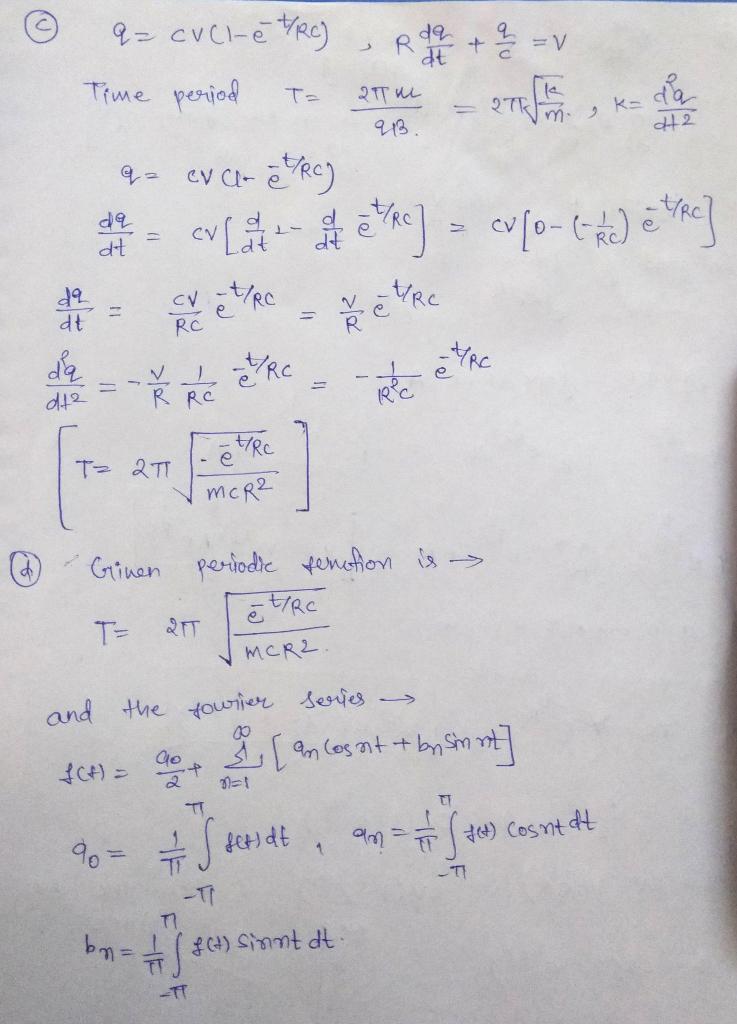 (c) q = CV(1-e^-t/RC) , R dq/dt + q/c = V
Time period T = 2πm/qB. = 2π√(k/m). , K = d²q/dt²
q = CV (1- e^-t/RC)
dq/dt = CV[d/dt 1 - d/dt e^-t/RC] = CV[0-(-1/RC) e^-t/RC]
dq/dt = CV/RC e^-t/RC = V/R e^-t/RC
d²q/dt² = - V/R 1/RC e^-t/RC = - 1/R²C e^-t/RC
[T = 2π √(-e^-t/RC / mCR²)]
(d) Given periodic function is →
T = 2π √(e^-t/RC / mCR2.)
and the fourier series →
f(t) = a0/2 + ∑ n=1 ∞ [an cos nt + bn sin nt]
a0 = 1/π ∫ -π π f(t) dt , an = 1/π ∫ -π π f(t) cosnt dt
bn = 1/π ∫ -π π f(t) sinnt dt.